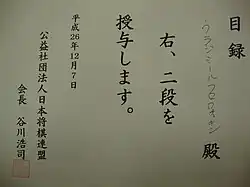 目録
ウラジミール 殿
右、二段を
授与します。
平成26年12月7日
公益社団法人日本将棋連盟
会長 谷川浩司